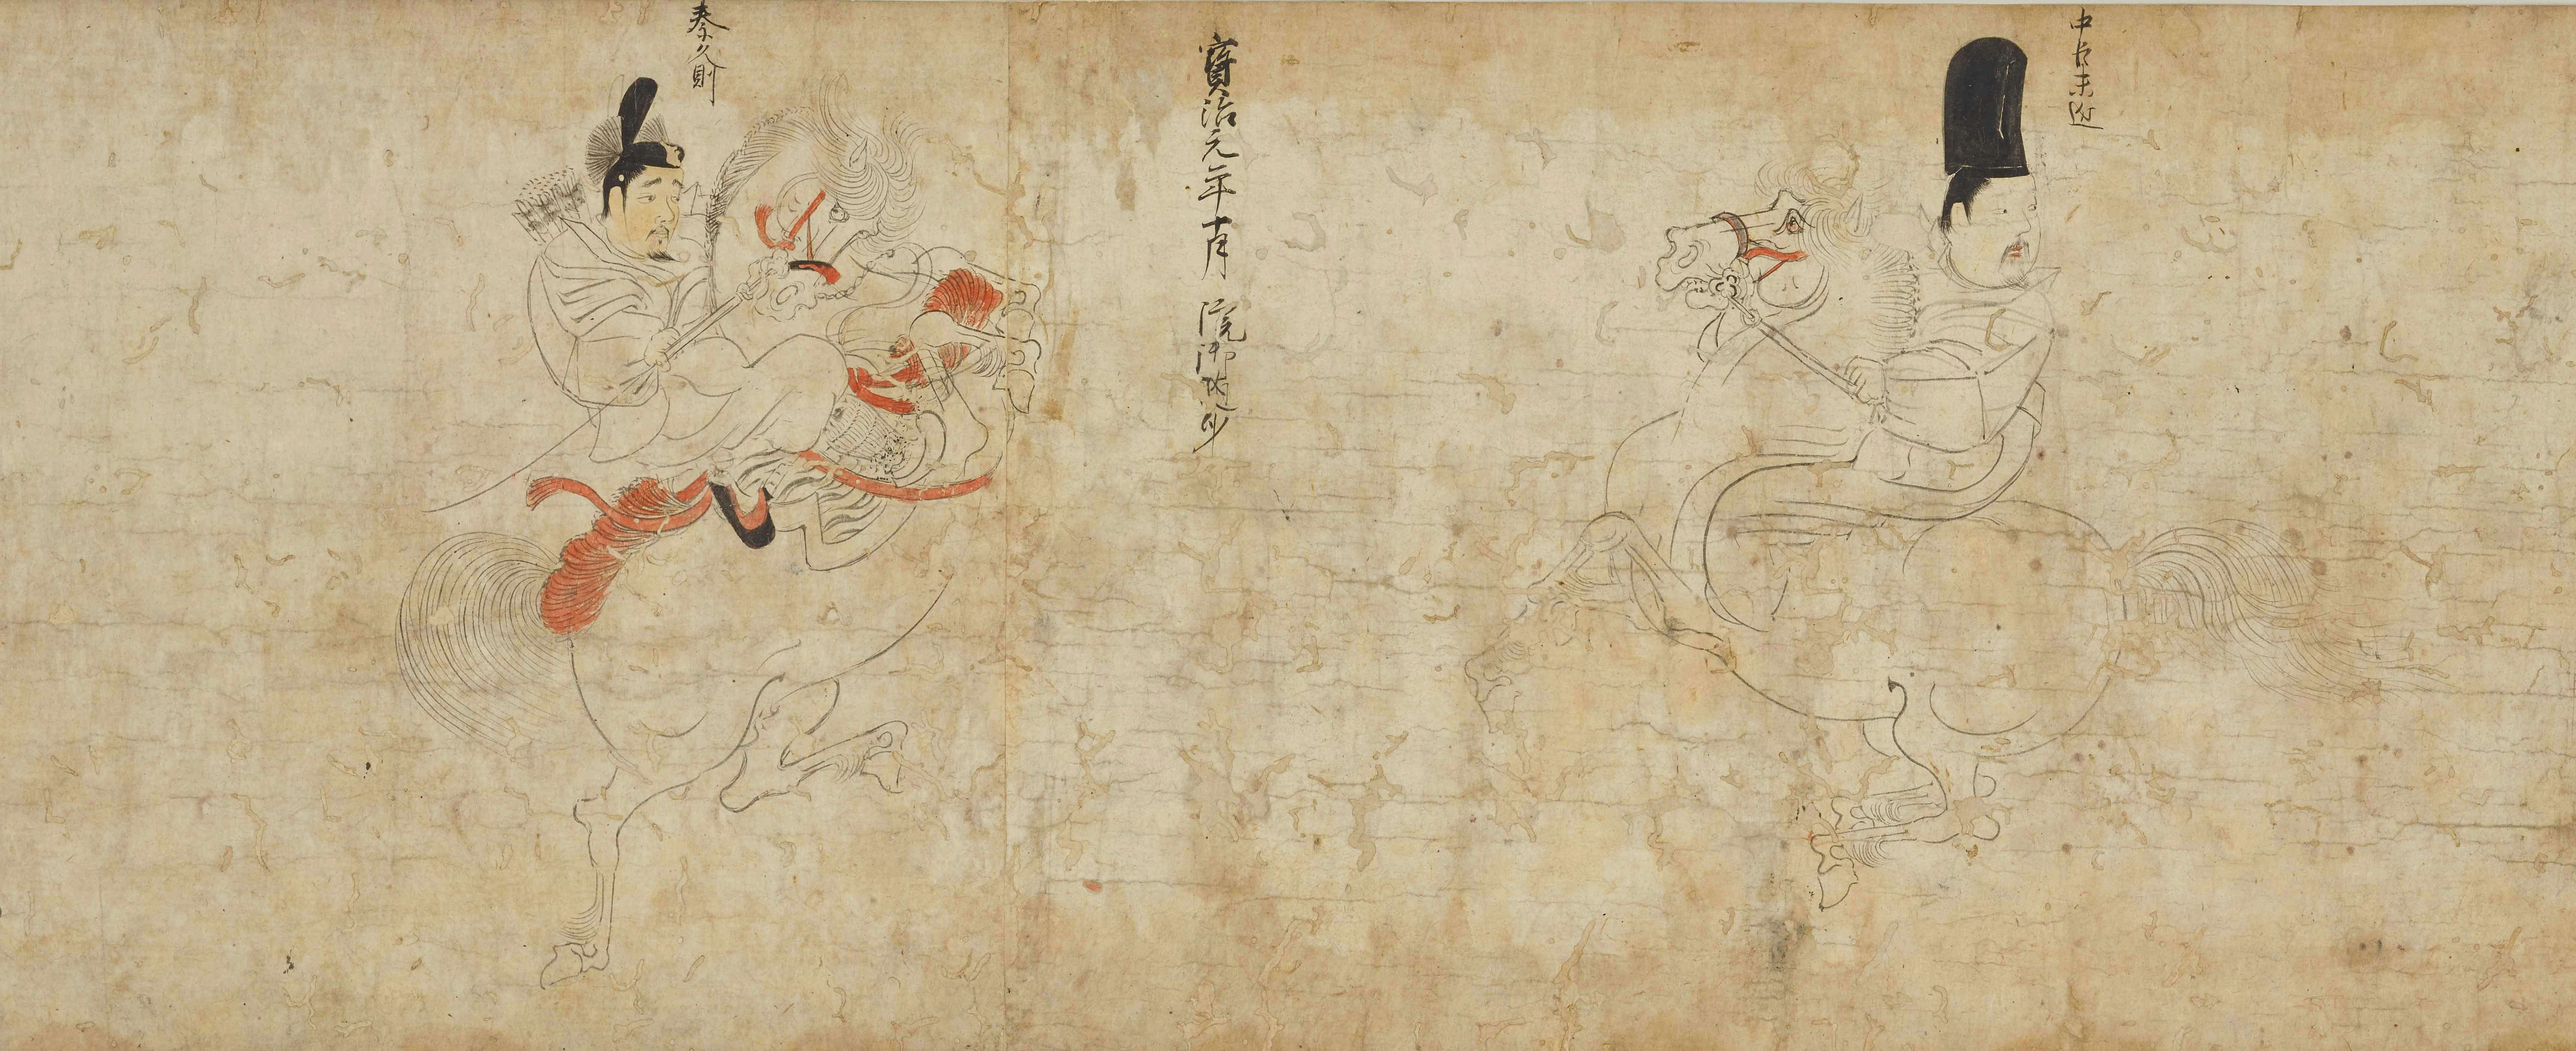 中臣末近
寳治元年十月 院御随身
秦久則